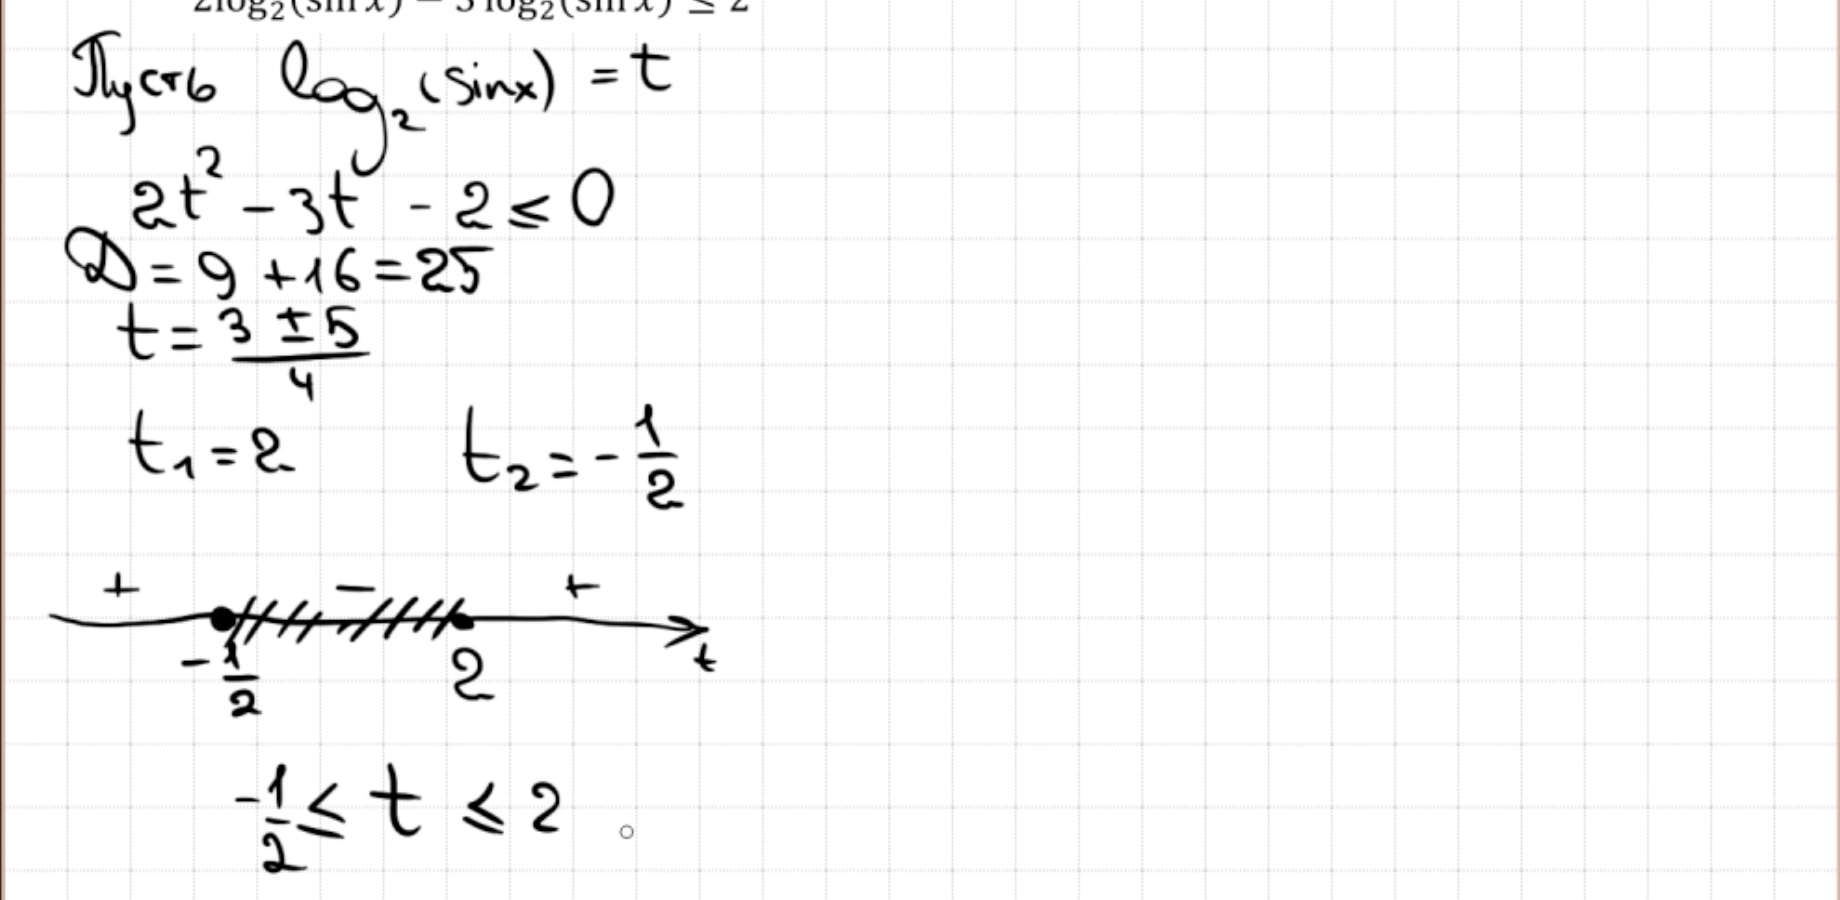 2log₂(sin x) − 3 log₂(sin x) ≤ 2
Пусть log₂(sinx) = t
2t² - 3t - 2 ≤ 0
D = 9 + 16 = 25
t = (3 ± 5)/4
t₁ = 2 t₂ = - 1/2
+ − +
- 1/2 2 t
-1/2 ≤ t ≤ 2